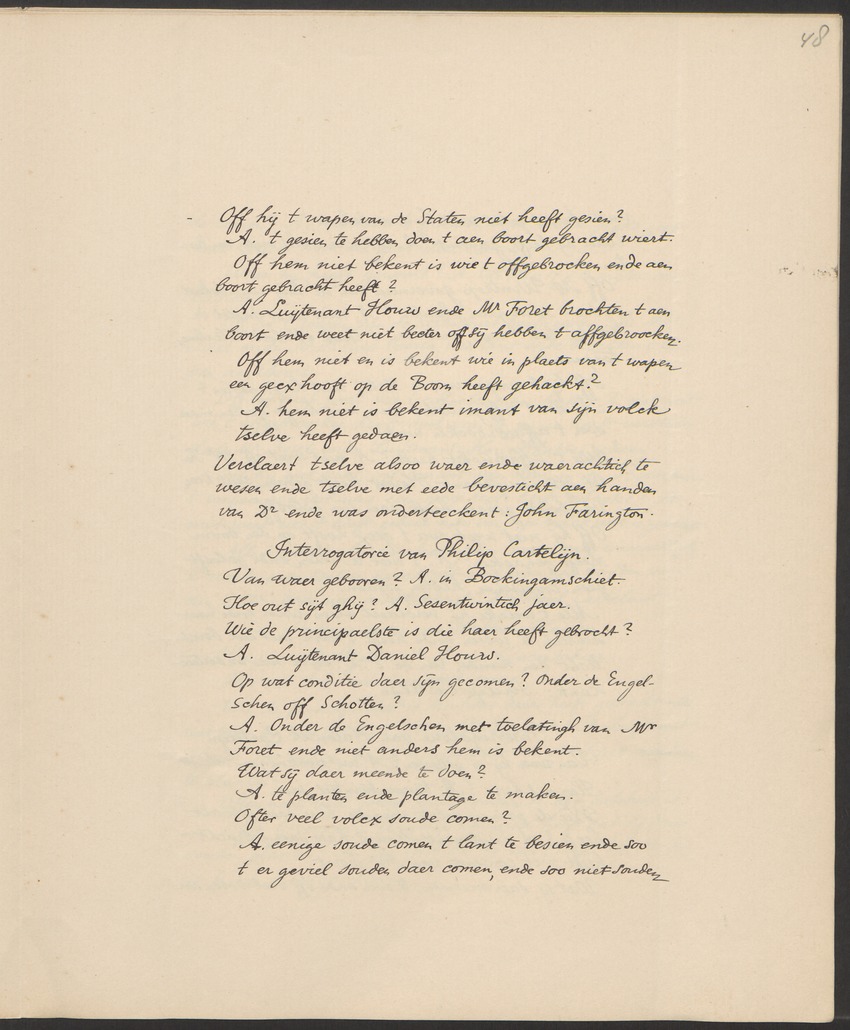 48
Off hij t wapen van de Staten niet heeft gesien?
A. 't gesien te hebben doen t aen boort gebracht wiert.
Off hem niet bekent is wie t offgebrocken ende aen
boort gebracht heeft?
A. Luijtenant Houw ende Mr Foret brochten t aen
boort ende weet niet beeter off sij hebben t affgebroocken.
Off hem niet en is bekent wie in plaets van t wapen
een geex hooft op de Boom heeft gehackt?
A. hem niet is bekent imant van sijn volck
tselve heeft gedaen.
Verclaert tselve alsoo waer ende waerachtich te
wesen ende tselve met eede bevesticht aen handen
van Dr ende was onderteeckent: John Farington.
Interrogatorie van Philip Cartelijn.
Van waer gebooren? A. in Bockingamschiet.
Hoe out sijt ghij? A. Sesentwintich jaer.
Wie de principaelste is die haer heeft gebrocht?
A. Luijtenant Daniel Houw.
Op wat conditie daer sijn gecomen? onder de Engel-
schen off Schotten?
A. Onder de Engelschen met toelatingh van Mr
Foret ende niet anders hem is bekent.
Wat sij daer meende te doen?
A. te planten ende plantage te maken.
Ofter veel volcx soude comen?
A. eenige soude comen t lant te besien ende soo
t er geviel souden daer comen, ende soo niet souden